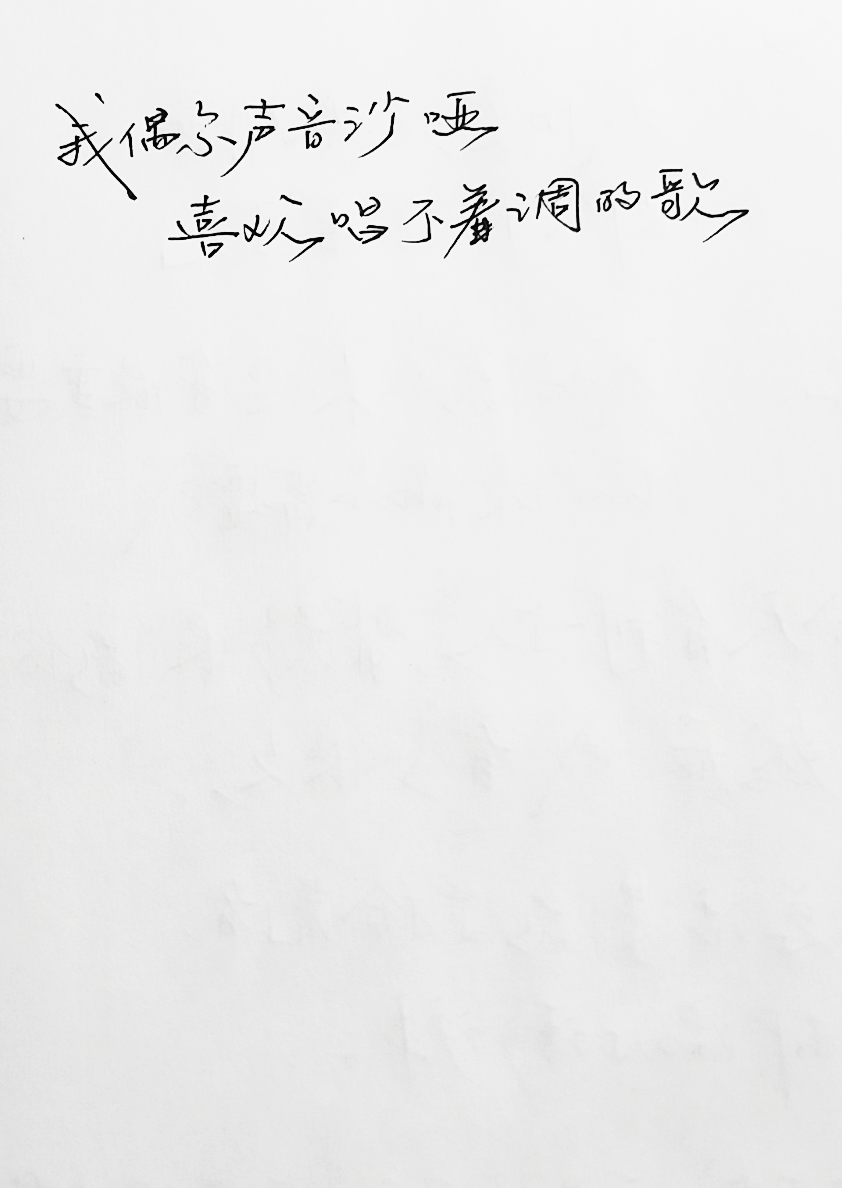 我偶尔声音沙哑
喜欢唱不着调的歌